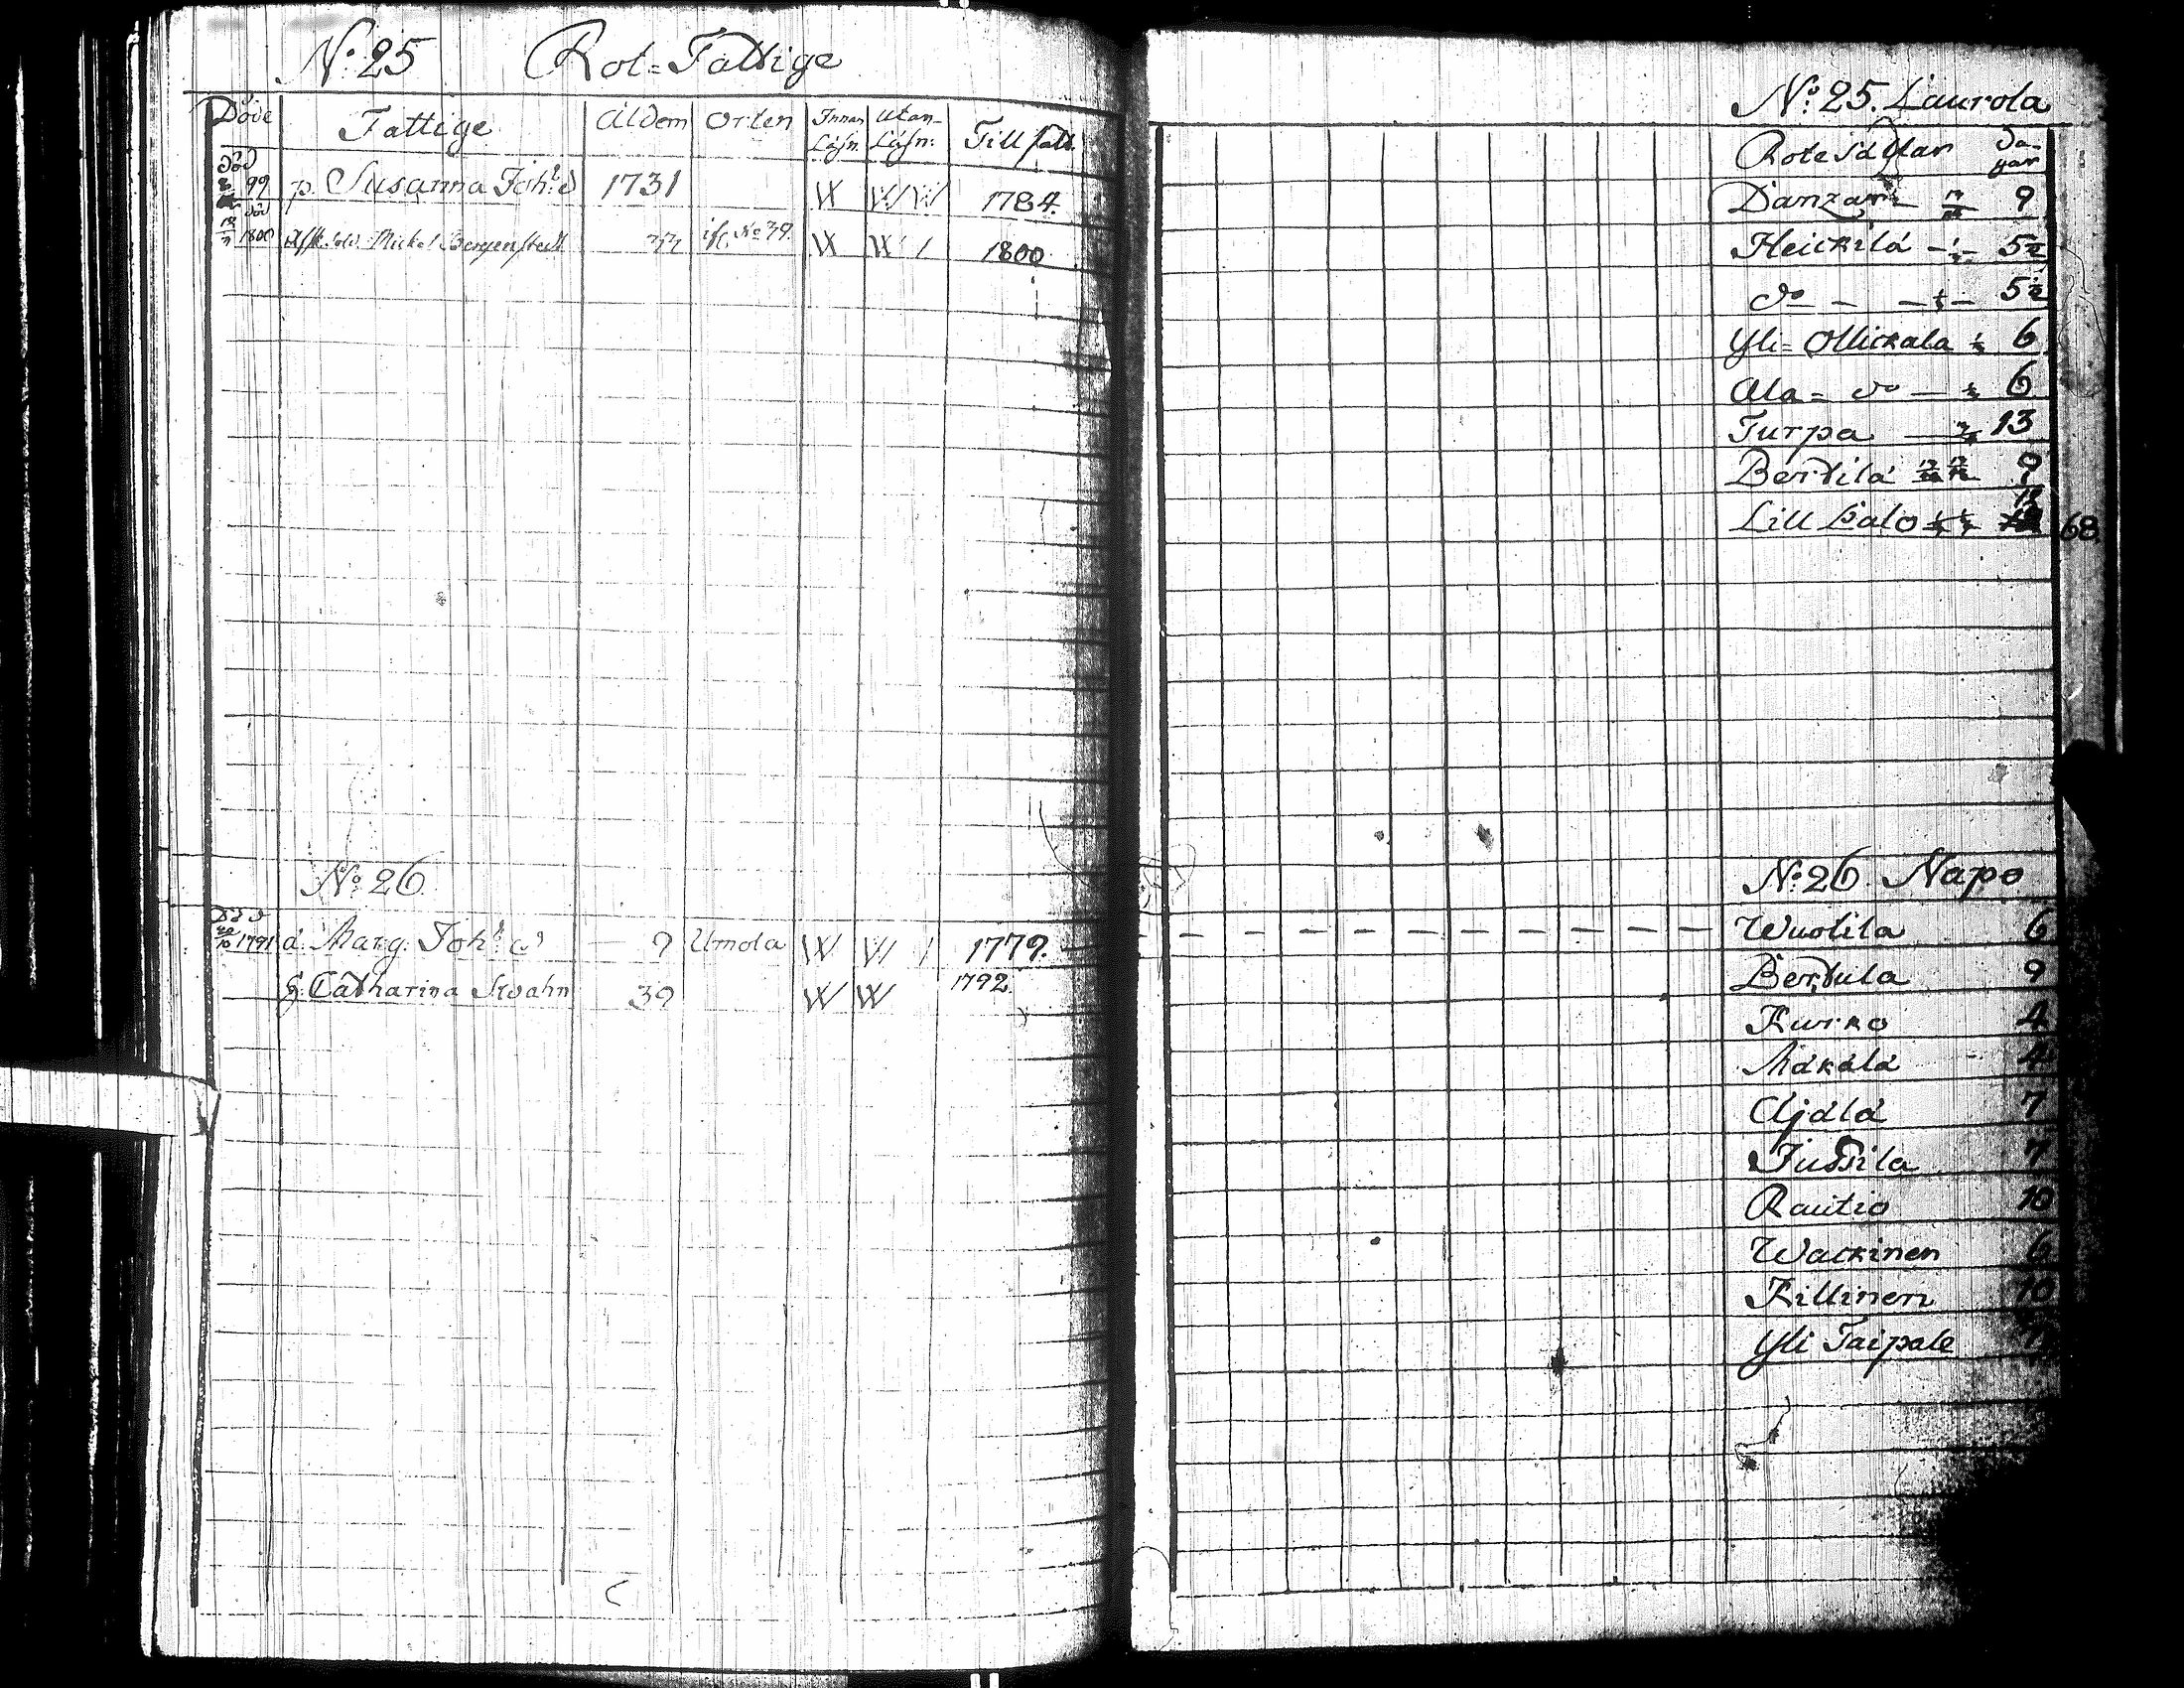 N:o 25 Rot-Fattige
Döde Fattige Åldern Orten Innan Läsn. Utan Läsn: Till fatt.
död 99 p. Susanna Joh:s d 1731 1784.
död 1800 Afsk. Sold. Mickel Bergenstedt 33 ifr. No 39. 1800
N:o 26
död 1791 d. Marg. Joh:s d:r 9 Umola 1779.
E. Catharina Svahn 39 1792.
N:o 25. Laurola
Rotesällar Dagar
Danzar 9
Heickilä 5½
do 5½
Yli-Ollickala 6
Ala- do 6
Turpa 13
Bertilä 9
Lill Salo 68
N:o 26. Napo
Wuotila 6
Bertula 9
Kurko 4
Mäkälä 4
Äjälä 7
Jussila 7
Rautio 10
Wackinen 6
Killinen 10
Yli Taipale